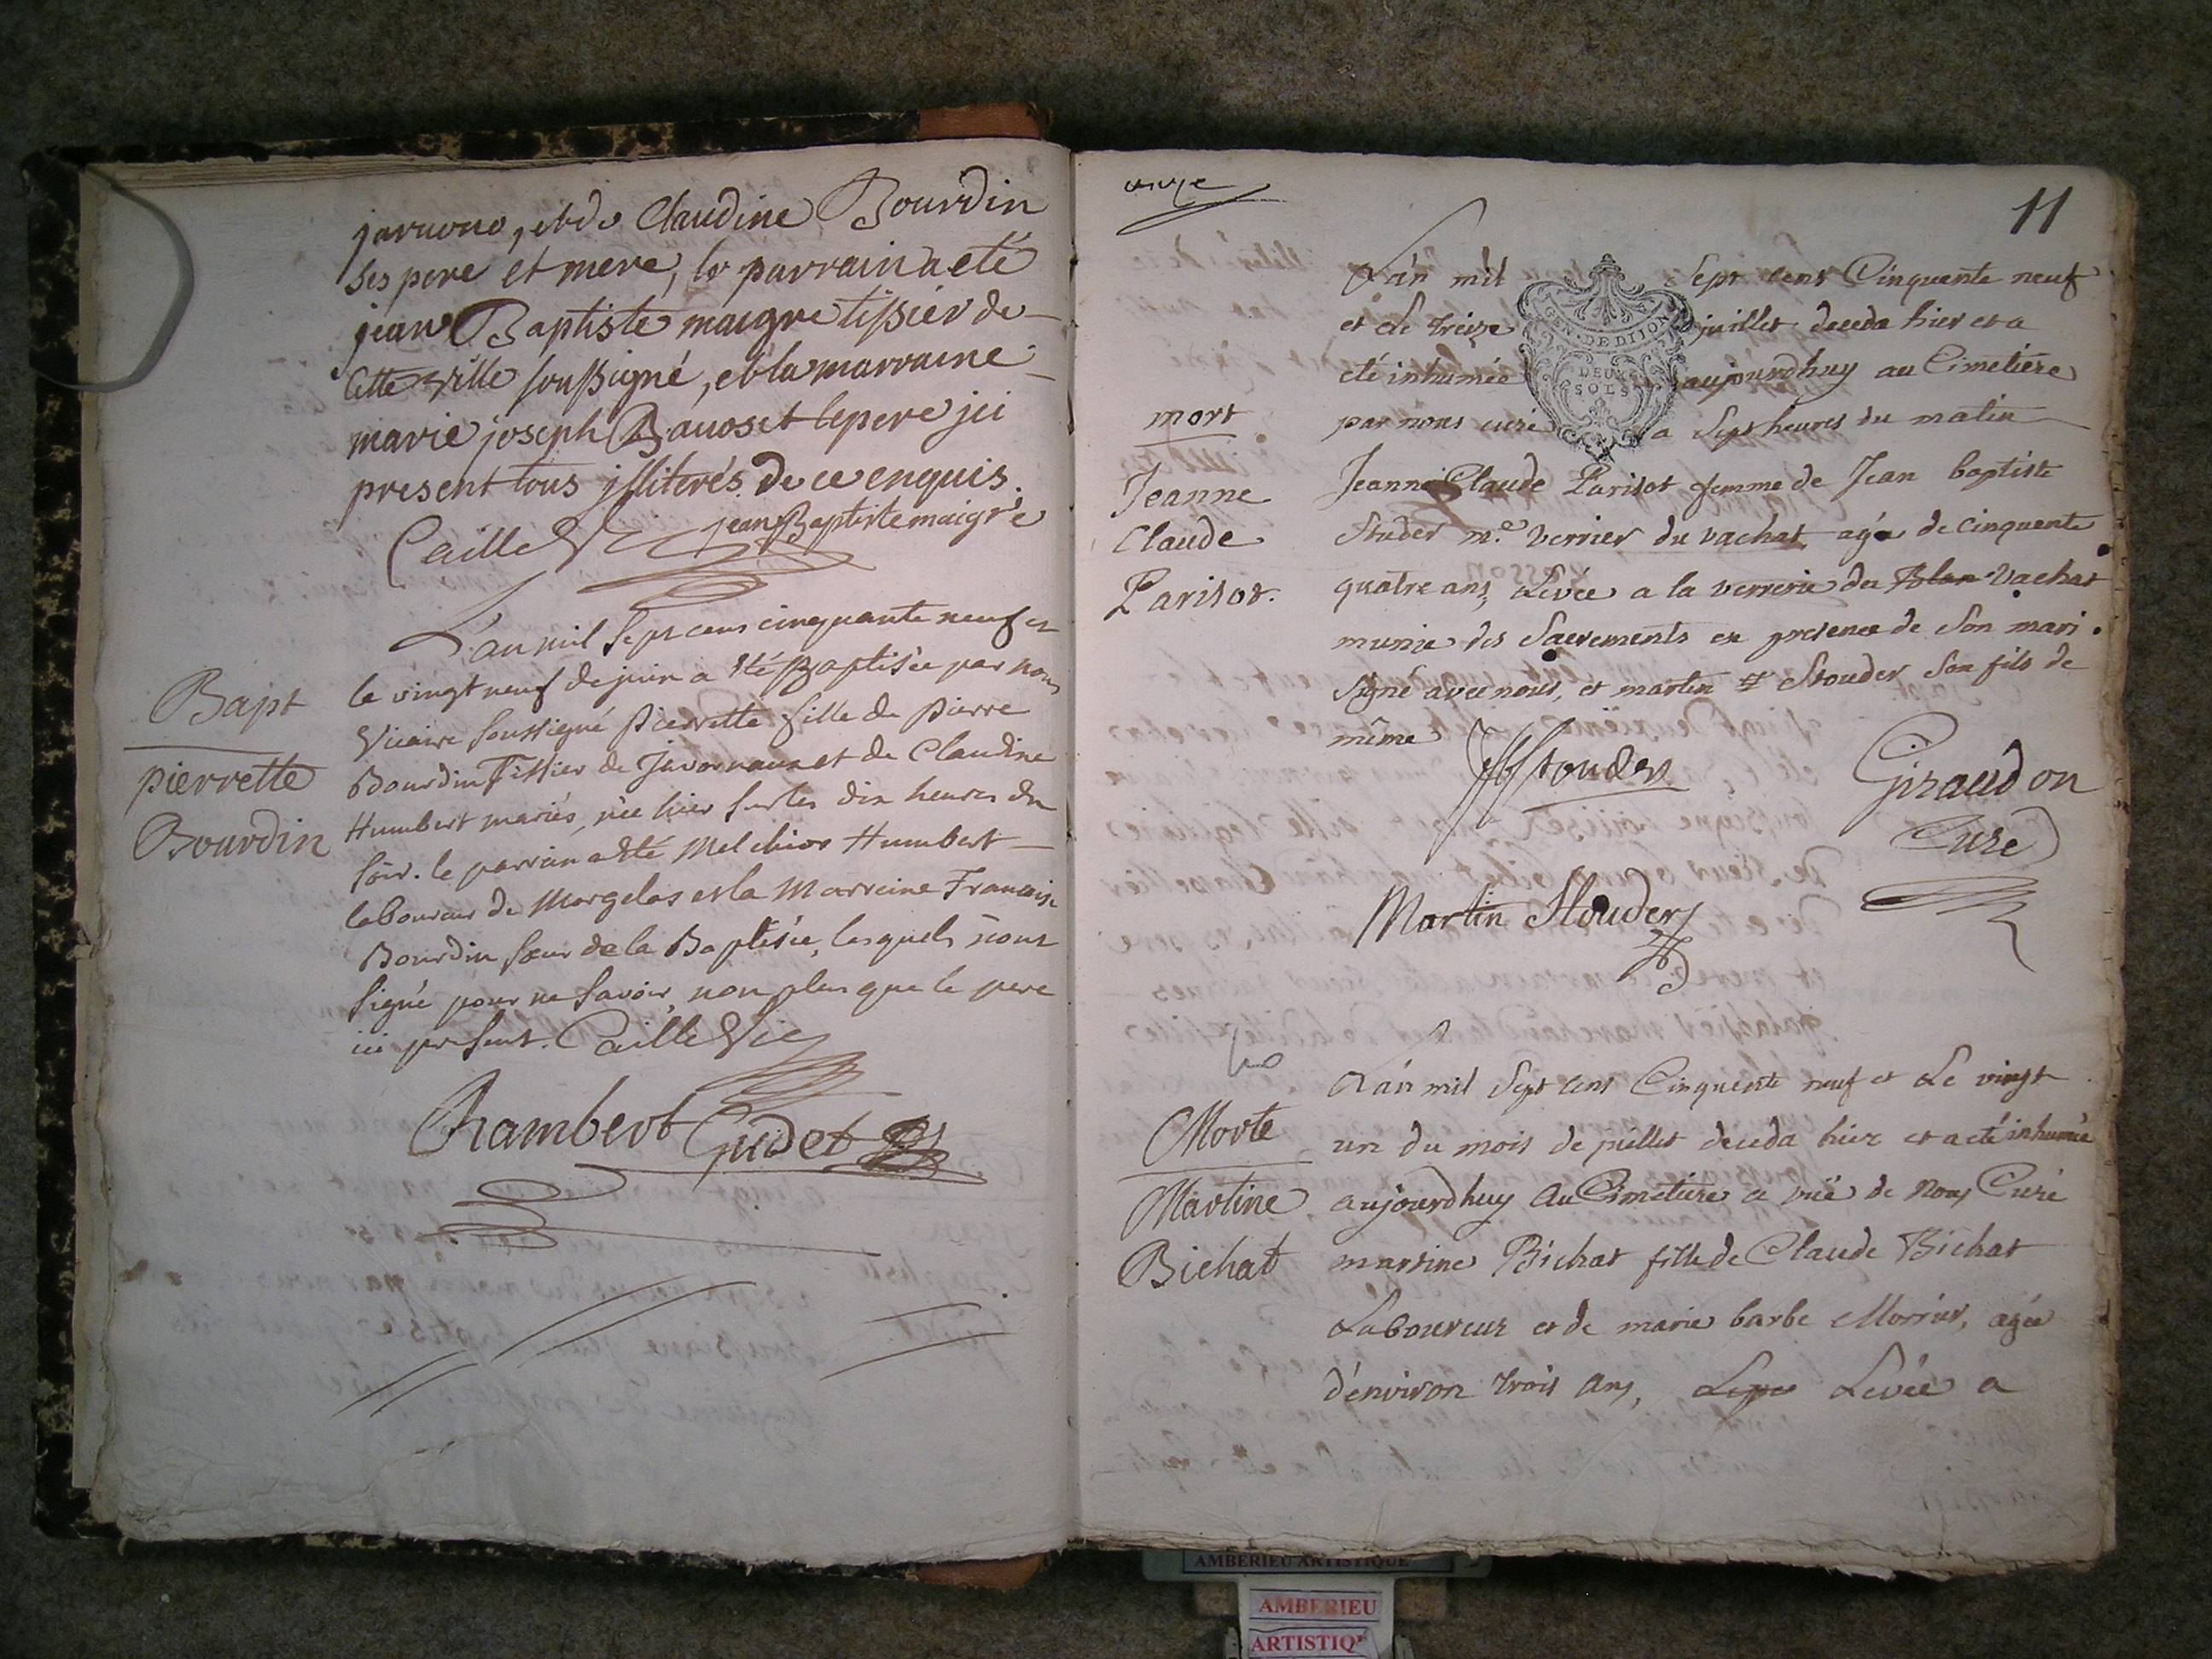 et de Claudine Bourdin
ses pere et mere, le parrain a eté
jean Baptiste maigre tissier de
Cette ville soussigné, et la marraine
marie joseph le pere jci
present tous jlliterés de ce enquis.
Caille Vic jean Baptiste maigre
L'an mil sept cens cinquante neuf et
le vingt neuf de juin a eté Baptisée par nous
Vicaire soussigné pierrette fille de pierre
Bourdin Tissier de et de Claudine
Humbert mariés, née hier sur les dix heures du
soir. le parrain a eté Melchior Humbert
laboureur de Morgelas et la Marreine Francoise
Bourdin sœur de la Baptisée, lesquels n'ont
signé pour ne savoir, non plus que le pere
ici present. Caille Vic
Chambert Guidet
Bapt
pierrette
Bourdin
onze
11
L'an mil sept cens Cinquante neuf
et Le treize juillet deceda hier et a
été inhumée aujourdhuy au Cimetière
par nous curé a sept heures du matin
Jeanne Claude Parisot femme de Jean baptiste
Studer m.e verrier du vachat agée de cinquente
quatre ans, Levée a la verrerie du Blan vachat
munie des Sacrements en presence de Son mari
Signé avec nous, et martin St Stouder Son fils de
même
GEN. DE DIJON
DEUX
SOLS
mort
Jeanne
Claude
Parisot.
Stouder
Giraudon
Curé
Martin Stouder
L'an mil Sept cens Cinquente neuf et Le vingt
un du mois de juillet deceda hier et a eté inhumée
aujourdhuy Au Cimetiere a vüe de Nous Curé
martine Bichat fille de Claude Bichat
Laboureur et de marie barbe agée
d'environ trois Ans, Levée a
Morte
Martine
Bichat
AMBERIEU ARTISTIQUE
AMBERIEU
ARTISTIQ